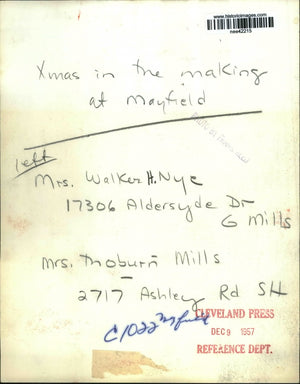 www.historicimages.com
nee42215
Xmas in the making
at Mayfield
left
Mrs. Walker H. Nye
17306 Aldersyde Dr
G Mills
Mrs. Thoburn Mills
2717 Ashley Rd SH
CLEVELAND PRESS
DEC 9 1957
REFERENCE DEPT.